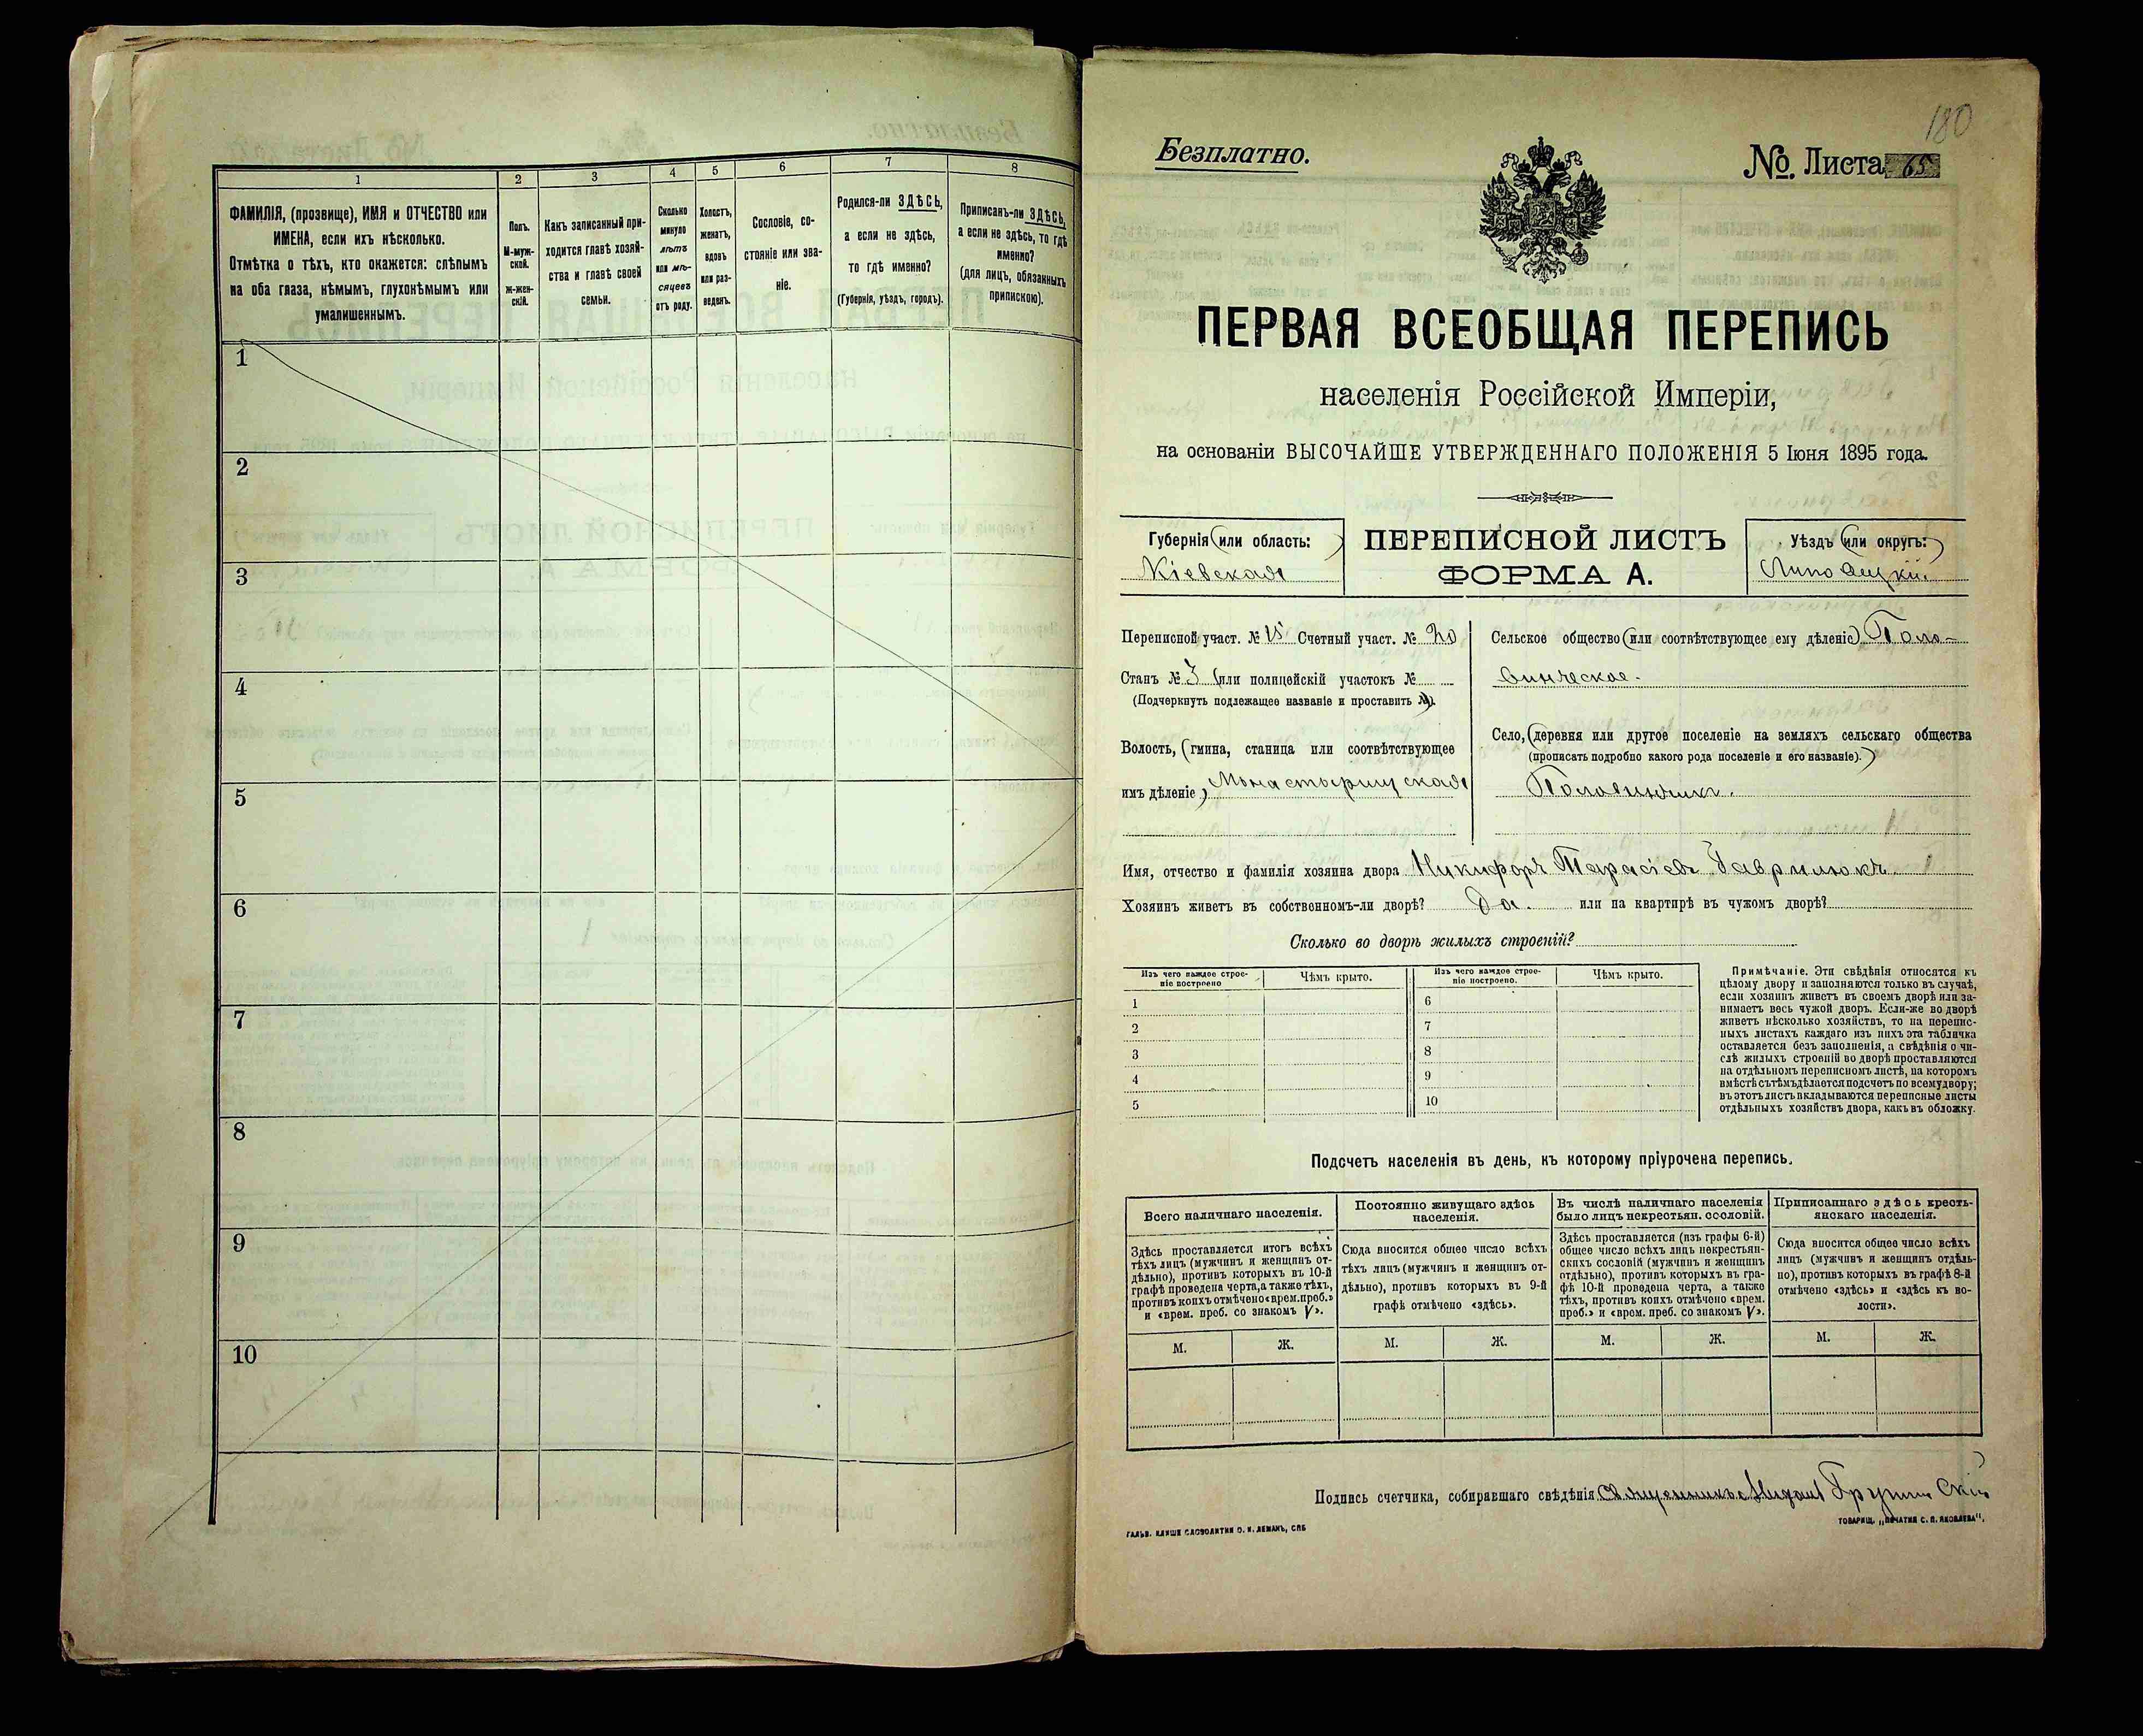 1 2 3 4 5 6 7 8
ФАМИЛІЯ, (прозвище), ИМЯ и ОТЧЕСТВО или
ИМЕНА, если ихъ нѣсколько.
Отмѣтка о тѣхъ, кто окажется: слѣпымъ
на оба глаза, нѣмымъ, глухонѣмымъ или
умалишеннымъ.
Полъ.
М-муж-
ской.
Ж-жен-
скій.
Какъ записанный при-
ходится главѣ хозяй-
ства и главѣ своей
семьи.
Сколько
минуло
лѣтъ
или мѣ-
сяцевъ
отъ роду.
Холостъ,
женатъ,
вдовъ
или раз-
веденъ.
Сословіе, со-
стояніе или зва-
ніе.
Родился-ли ЗДѢСЬ,
а если не здѣсь,
то гдѣ именно?
(Губернія, уѣздъ, городъ).
Приписанъ-ли ЗДѢСЬ,
а если не здѣсь, то гдѣ
именно?
(для лицъ, обязанныхъ
припискою).
1
2
3
4
5
6
7
8
9
10
180
Безплатно.
№ Листа 65
ПЕРВАЯ ВСЕОБЩАЯ ПЕРЕПИСЬ
населенія Россійской Имперіи,
на основаніи ВЫСОЧАЙШЕ УТВЕРЖДЕННАГО ПОЛОЖЕНІЯ 5 Іюня 1895 года.
Губернія (или область:)
Кіевская
ПЕРЕПИСНОЙ ЛИСТЪ
ФОРМА А.
Уѣздъ (или округъ:)
Липовецкій
Переписной участ. № 15 Счетный участ. № 20
Станъ № 3 (или полицейскій участокъ №
(Подчеркнуть подлежащее названіе и проставить №).
Волость, (гмина, станица или соотвѣтствующее
имъ дѣленіе) Монастырищская
Сельское общество (или соотвѣтствующее ему дѣленіе) Поло-
винческое.
Село, (деревня или другое поселеніе на земляхъ сельскаго общества
(прописать подробно какого рода поселеніе и его названіе).)
Половинчикъ.
Имя, отчество и фамилія хозяина двора Никифоръ Тарасіевъ Гаврилюкъ.
Хозяинъ живетъ въ собственномъ-ли дворѣ? Да. или на квартирѣ въ чужомъ дворѣ?
Сколько во дворѣ жилыхъ строеній?
Изъ чего каждое строе-
ніе построено
Чѣмъ крыто.
Изъ чего каждое строе-
ніе построено.
Чѣмъ крыто.
1 6
2 7
3 8
4 9
5 10
Примѣчаніе. Эти свѣдѣнія относятся къ
цѣлому двору и заполняются только въ случаѣ,
если хозяинъ живетъ въ своемъ дворѣ или за-
нимаетъ весь чужой дворъ. Если-же во дворѣ
живетъ нѣсколько хозяйствъ, то на перепис-
ныхъ листахъ каждаго изъ нихъ эта табличка
оставляется безъ заполненія, а свѣдѣнія о чи-
слѣ жилыхъ строеній во дворѣ проставляются
на отдѣльномъ переписномъ листѣ, на которомъ
вмѣстѣ съ тѣмъ дѣлается подсчетъ по всему двору;
въ этотъ листъ вкладываются переписные листы
отдѣльныхъ хозяйствъ двора, какъ въ обложку.
Подсчетъ населенія въ день, къ которому пріурочена перепись.
Всего наличнаго населенія.
Постоянно живущаго здѣсь
населенія.
Въ числѣ наличнаго населенія
было лицъ некрестьян. сословій.
Приписаннаго здѣсь кресть-
янскаго населенія.
Здѣсь проставляется итогъ всѣхъ
тѣхъ лицъ (мужчинъ и женщинъ от-
дѣльно), противъ которыхъ въ 10-й
графѣ проведена черта, а также тѣхъ,
противъ коихъ отмѣчено «врем. преб.»
и «врем. преб. со знакомъ V».
Сюда вносится общее число всѣхъ
тѣхъ лицъ (мужчинъ и женщинъ от-
дѣльно), противъ которыхъ въ 9-й
графѣ отмѣчено «здѣсь».
Здѣсь проставляется (изъ графы 6-й)
общее число всѣхъ лицъ некрестьян-
скихъ сословій (мужчинъ и женщинъ
отдѣльно), противъ которыхъ въ гра-
фѣ 10-й проведена черта, а также
тѣхъ, противъ коихъ отмѣчено «врем.
преб.» и «врем. преб. со знакомъ V».
Сюда вносится общее число всѣхъ
лицъ (мужчинъ и женщинъ отдѣль-
но), противъ которыхъ въ графѣ 8-й
отмѣчено «здѣсь» и «здѣсь къ во-
лости».
М. Ж. М. Ж. М. Ж. М. Ж.
Подпись счетчика, собиравшаго свѣдѣнія Священникъ
ГАЛЬВ. КЛИШЕ СЛОВОЛИТНИ О. И. ЛЕМАНЪ, СПБ
ТОВАРИЩ. „ПЕЧАТНЯ С. П. ЯКОВЛЕВА“.